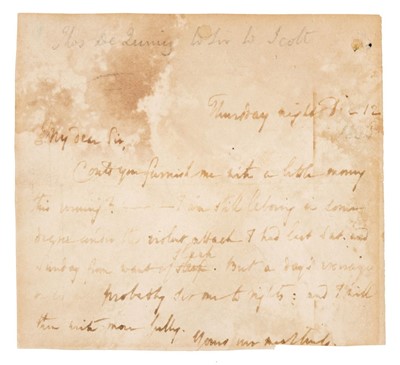 Thos de Quincey to Sir W Scott
Thursday night
My dear Sir,
Could you furnish me with a little money
this evening? — — I am still laboring in some
degree under the violent attack I had last Sat. and
Sunday from want of sleep. But a day's
probably set me to rights: and I will
then write more fully.
Yours ever